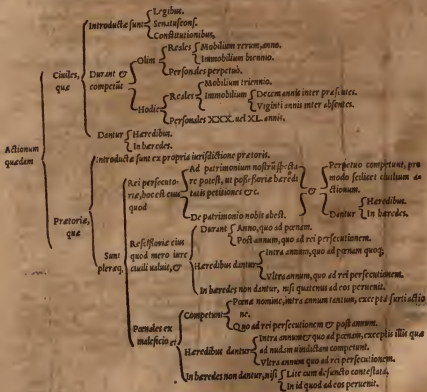 Actionum quædam
Civiles, quæ
Introductæ sunt
Legibus.
Senatuscons.
Constitutionibus.
Durant & competũt
Olim
Reales
Mobilium rerum, anno.
Immobilium biennio.
Personales perpetuò.
Hodie
Reales
Mobilium triennio.
Immobilium
Decem annis inter præsentes.
Viginti annis inter absentes.
Personales XXX. uel XL. annis.
Dantur
Hæredibus.
In hæredes.
Prætoriæ, quæ
Introductæ sunt ex propria iurisdictione prætoris.
Sunt pleræq,
Rei persecuto-
riæ, hoc est eius
quod
Ad patrimonium nostrũ specta
re potest, ut possessoriæ hæredi
tatis petitiones &c.
De patrimonio nobis abest.
&
Perpetuo competunt, pro
modo scilicet ciuilium a-
ctionum.
Dantur
Hæredibus.
In hæredes.
Rescissoriæ eius
quod mero iure
ciuili ualuit, &
Durant
Anno, quo ad pœnam.
Post annum, quo ad rei persecutionem.
Hæredibus dantur
Intra annum, quo ad pœnam quoq;
Vltra annum, quo ad rei persecutionem.
In hæredes non dantur, nisi quatenus ad eos peruenit.
Pœnales ex
maleficio &
Competunt
Pœnæ nomine, intra annum tantum, exceptâ furti actio
ne.
Quo ad rei persecutionem & post annum.
Hæredibus dantur
Intra annum & quo ad pœnam, exceptis illis quæ
ad nudam uindictam competunt.
Vltra annum quo ad rei persecutionem.
In hæredes non dantur, nisi
Lite cum defuncto contestata,
In id quod ad eos peruenit.